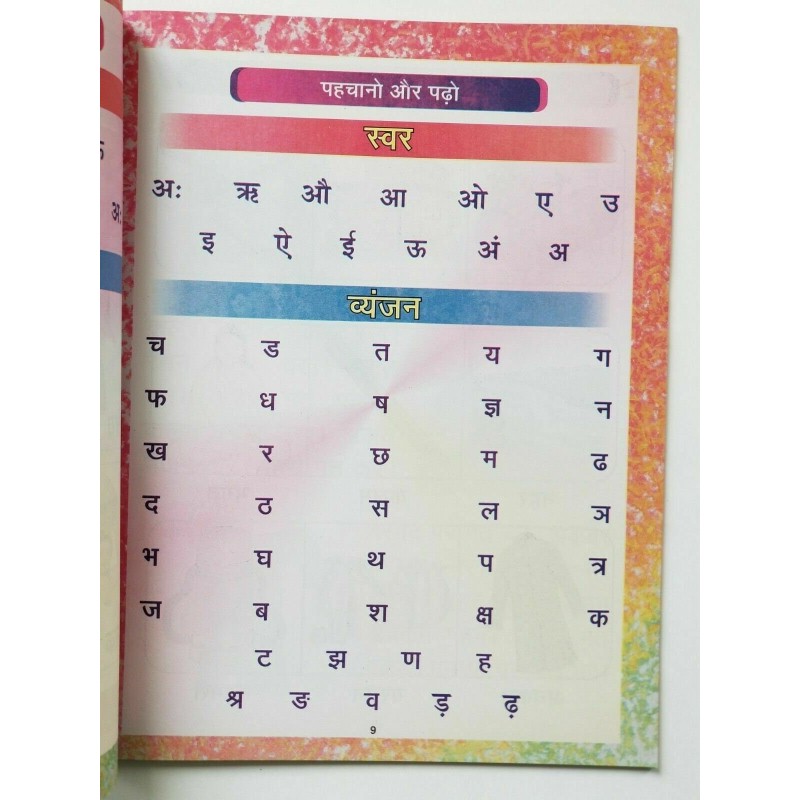 पहचानो और पढ़ो
स्वर
अः ऋ औ आ ओ ए उ
इ ऐ ई ऊ अं अ
व्यंजन
च ड त य ग
फ ध ष ज्ञ न
ख र छ म ढ
द ठ स ल ञ
भ घ थ प त्र
ज ब श क्ष क
ट झ ण ह
श्र ङ व ड़ ढ़
9
अः